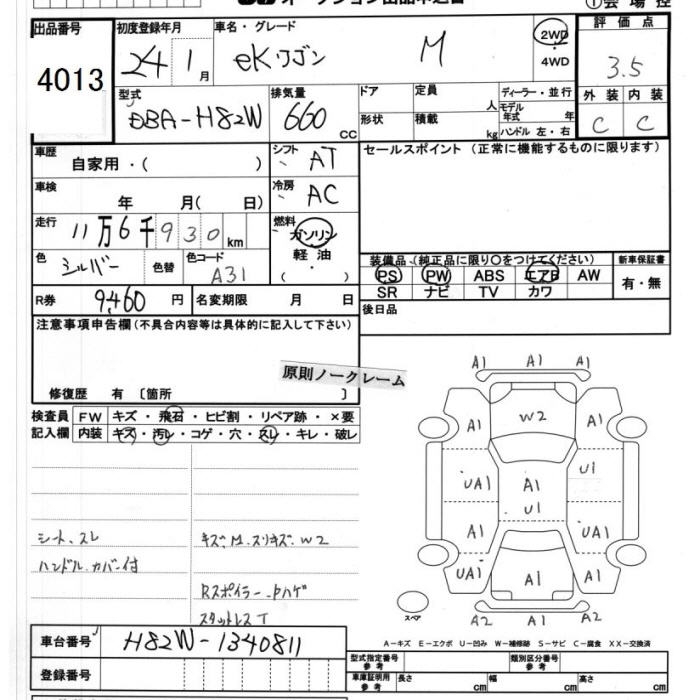 オークション出品申込書
①会場控
出品番号 初度登録年月 車名・グレード 評価点
4013 24年 1月 eKワゴン M 2WD 4WD 3.5
型式 排気量 ドア 定員 人 ディーラー・並行 外装 内装
DBA-H82W 660 cc 形状 積載 kg モデル年式 年 ハンドル 左・右 C C
車歴 自家用・( ) シフト AT セールスポイント (正常に機能するものに限ります)
車検 年 月( 日) 冷房 AC
走行 11万6千930km 燃料 ガソリン 軽油 ・ ( )
色 シルバー 色替 色コード A31
装備品 (純正品に限り○をつけてください) 新車保証書
PS PW ABS エアB AW 有・無
SR ナビ TV カワ
R券 9,460円 名変期限 月 日 後日品
注意事項申告欄(不具合内容等は具体的に記入して下さい)
原則ノークレーム
修復歴 有 〔箇所 〕
検査員 FW キズ・飛石・ヒビ割・リペア跡・×要
記入欄 内装 キズ・汚レ・コゲ・穴・スレ・キレ・破レ
シート、スレ
ハンドル.カバー付
キズ.M.スリキズ.W2
Rスポイラー.ハゲ
スタットレスT
A1 A1 A1
A1 W2 A1
UA1 A1 U1
U1
A1 UA1
UA1 A1 A1
スペア A2 A1 A2
A-キズ E-エクボ U-凹み W-補修跡 S-サビ C-腐食 XX-交換済
車台番号 H82W-1340811
登録番号
型式指定番号 参考 類別区分番号 参考
車庫証明用 参考 長さ cm 幅 cm 高さ cm